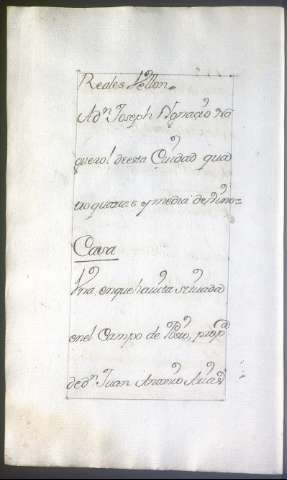 Reales Vellon.
A dn. Joseph Ygnacio
querol de esta Ciudad qua
tro quartas y media de vino=
Casa
Una en que havita situada
en el Campo de prop.
de dn. Juan Antonio Arias